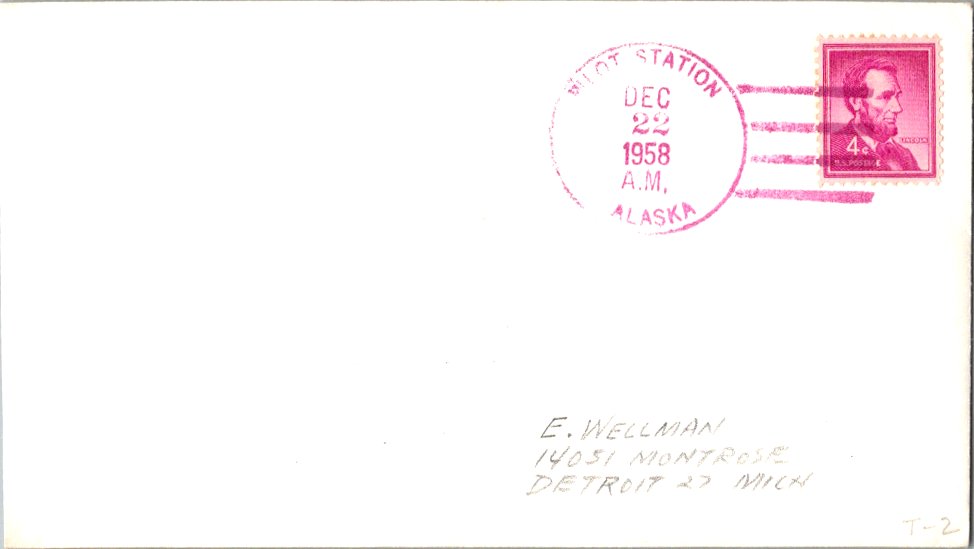 PILOT STATION
DEC
22
1958
A.M.
ALASKA
LINCOLN
4¢
U.S. POSTAGE
E. WELLMAN
14051 MONTROSE
DETROIT 27 MICH
T-2